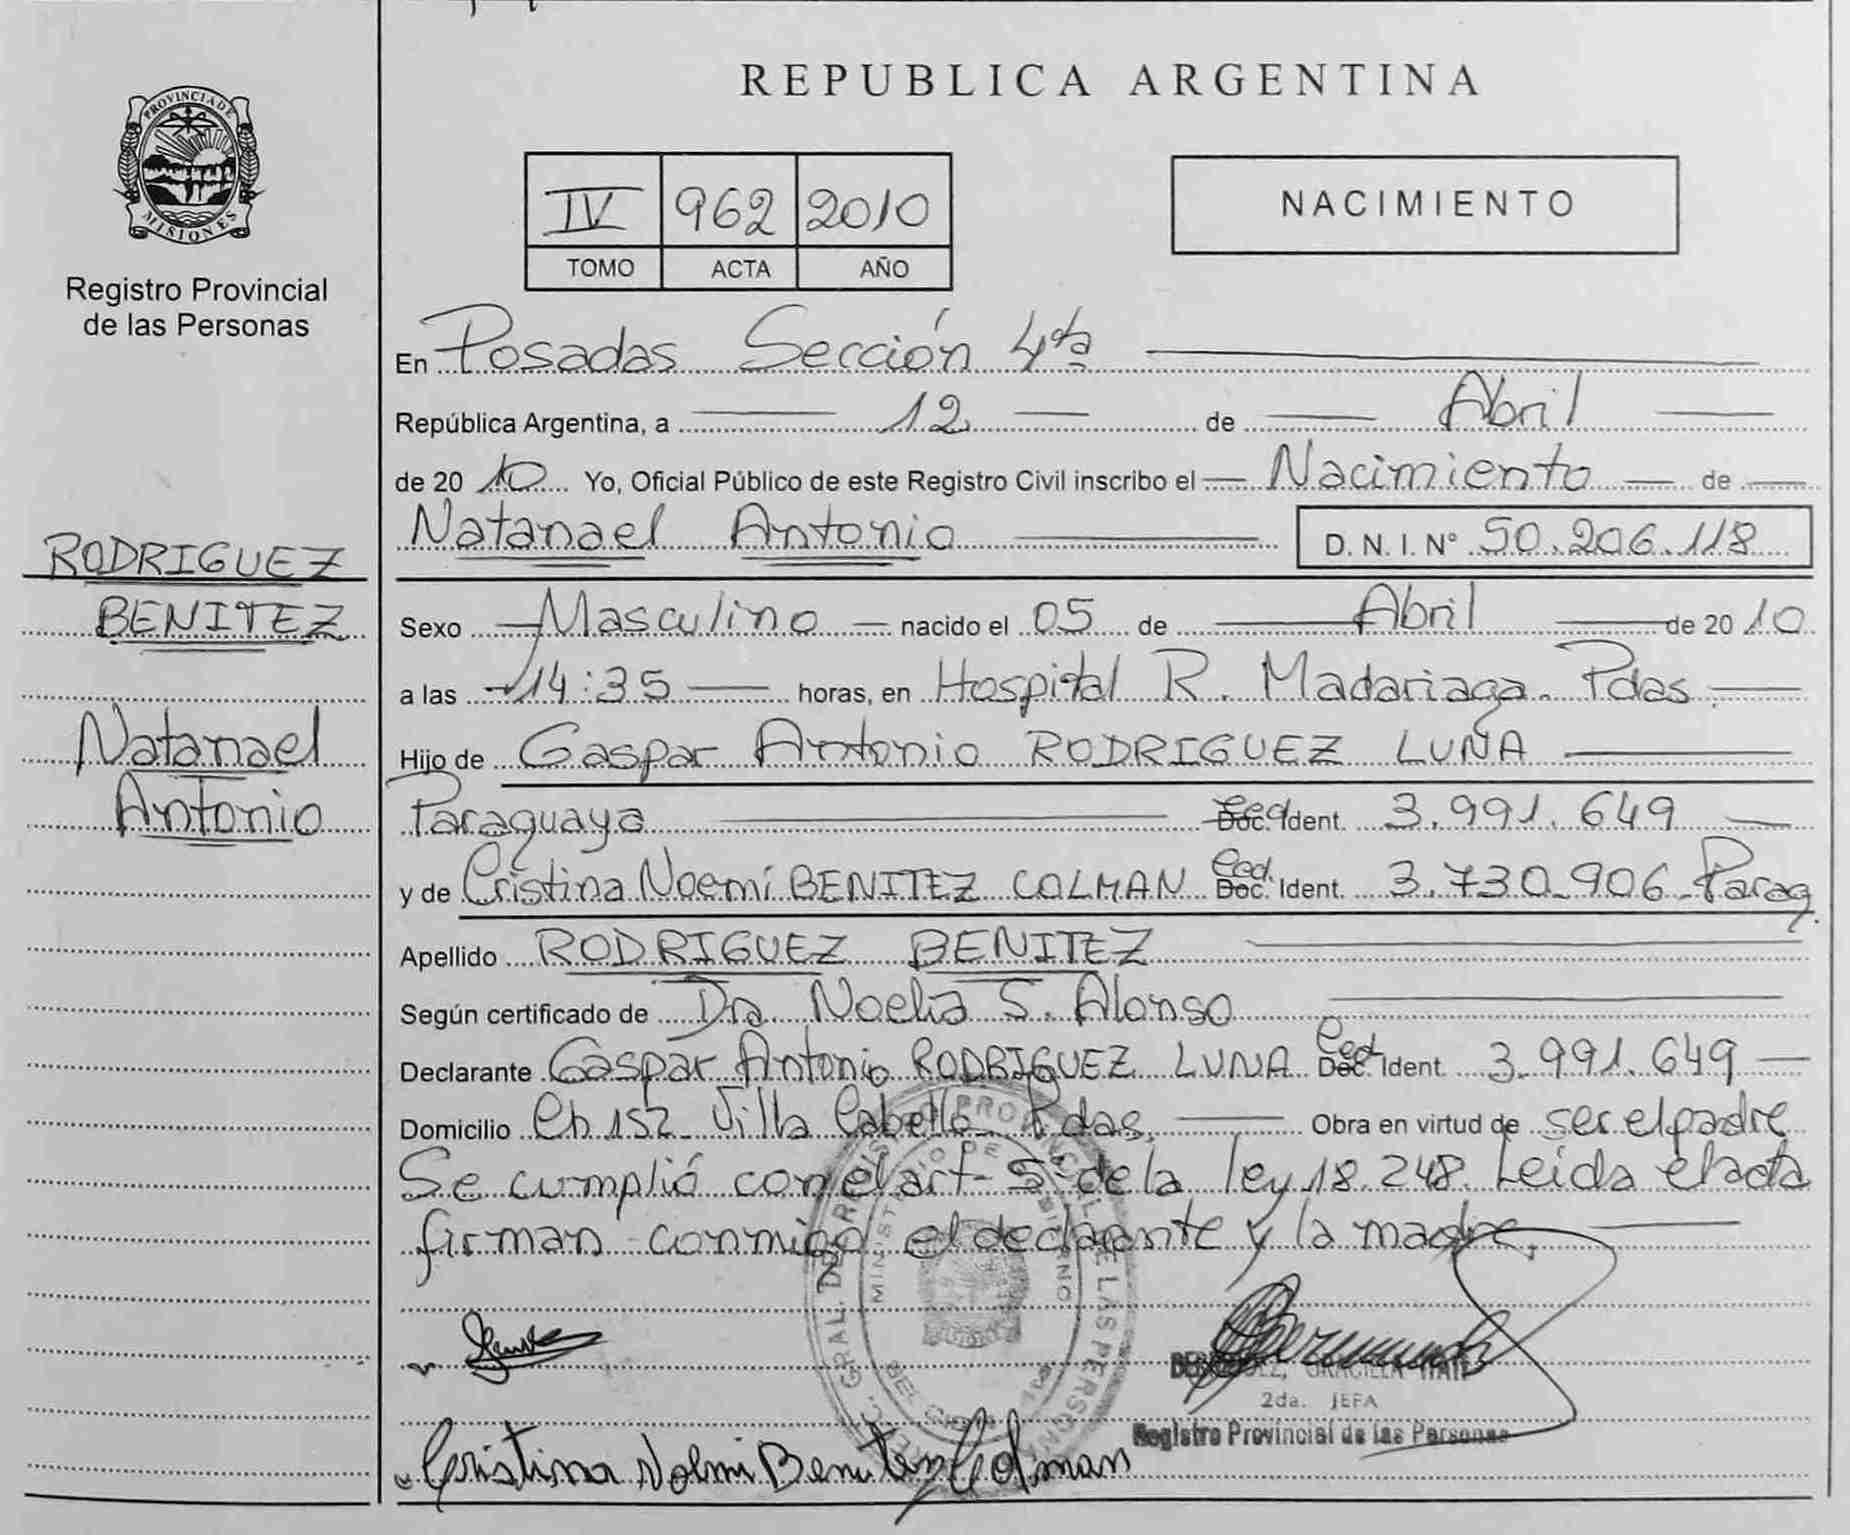 PROVINCIA DE
MISIONES
Registro Provincial
de las Personas
RODRIGUEZ
BENITEZ
Natanael
Antonio
REPUBLICA ARGENTINA
IV 962 2010
TOMO ACTA AÑO
NACIMIENTO
En Posadas Sección 4ta
República Argentina, a 12 de Abril
de 2010 Yo, Oficial Público de este Registro Civil inscribo el Nacimiento de
Natanael Antonio D.N.I. N° 50.206.118
Sexo Masculino nacido el 05 de Abril de 2010
a las 14:35 horas, en Hospital R. Madariaga. Pdas
Hijo de Gaspar Antonio RODRIGUEZ LUNA
Paraguaya Ced. Doc. Ident. 3.991.649
y de Cristina Noemí BENITEZ COLMAN Ced. Doc. Ident. 3.730.906 Parag.
Apellido RODRIGUEZ BENITEZ
Según certificado de Dra. Noelia S. Alonso
Declarante Gaspar Antonio RODRIGUEZ LUNA Ced. Doc. Ident. 3.991.649
Domicilio Ch 152 Villa Cabello Pdas. Obra en virtud de ser el padre
Se cumplió con el art- 5° de la ley 18.248. Leida el acta
firman conmigo, el declarante y la madre.
2da. JEFA
Registro Provincial de las Personas
Cristina Noemi Benitez Colman